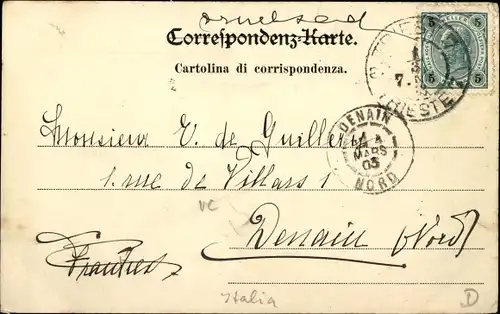 Correspondenz-Karte.
Cartolina di corrispondenza.
5 5
TRIESTE
7.
DENAIN
MARS
03
NORD
Monsieur V. de Guiller
1. rue de Villars 1
vc
Denain (Nord)
Italia
D